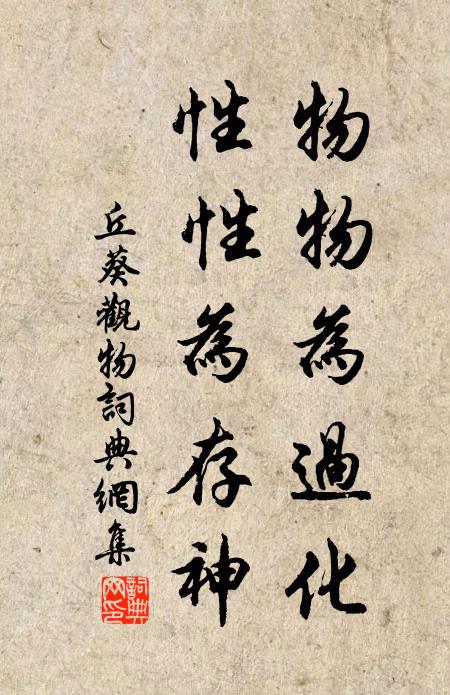 物物為過化
性性為存神
丘葵觀物詞典網集
詞典网印